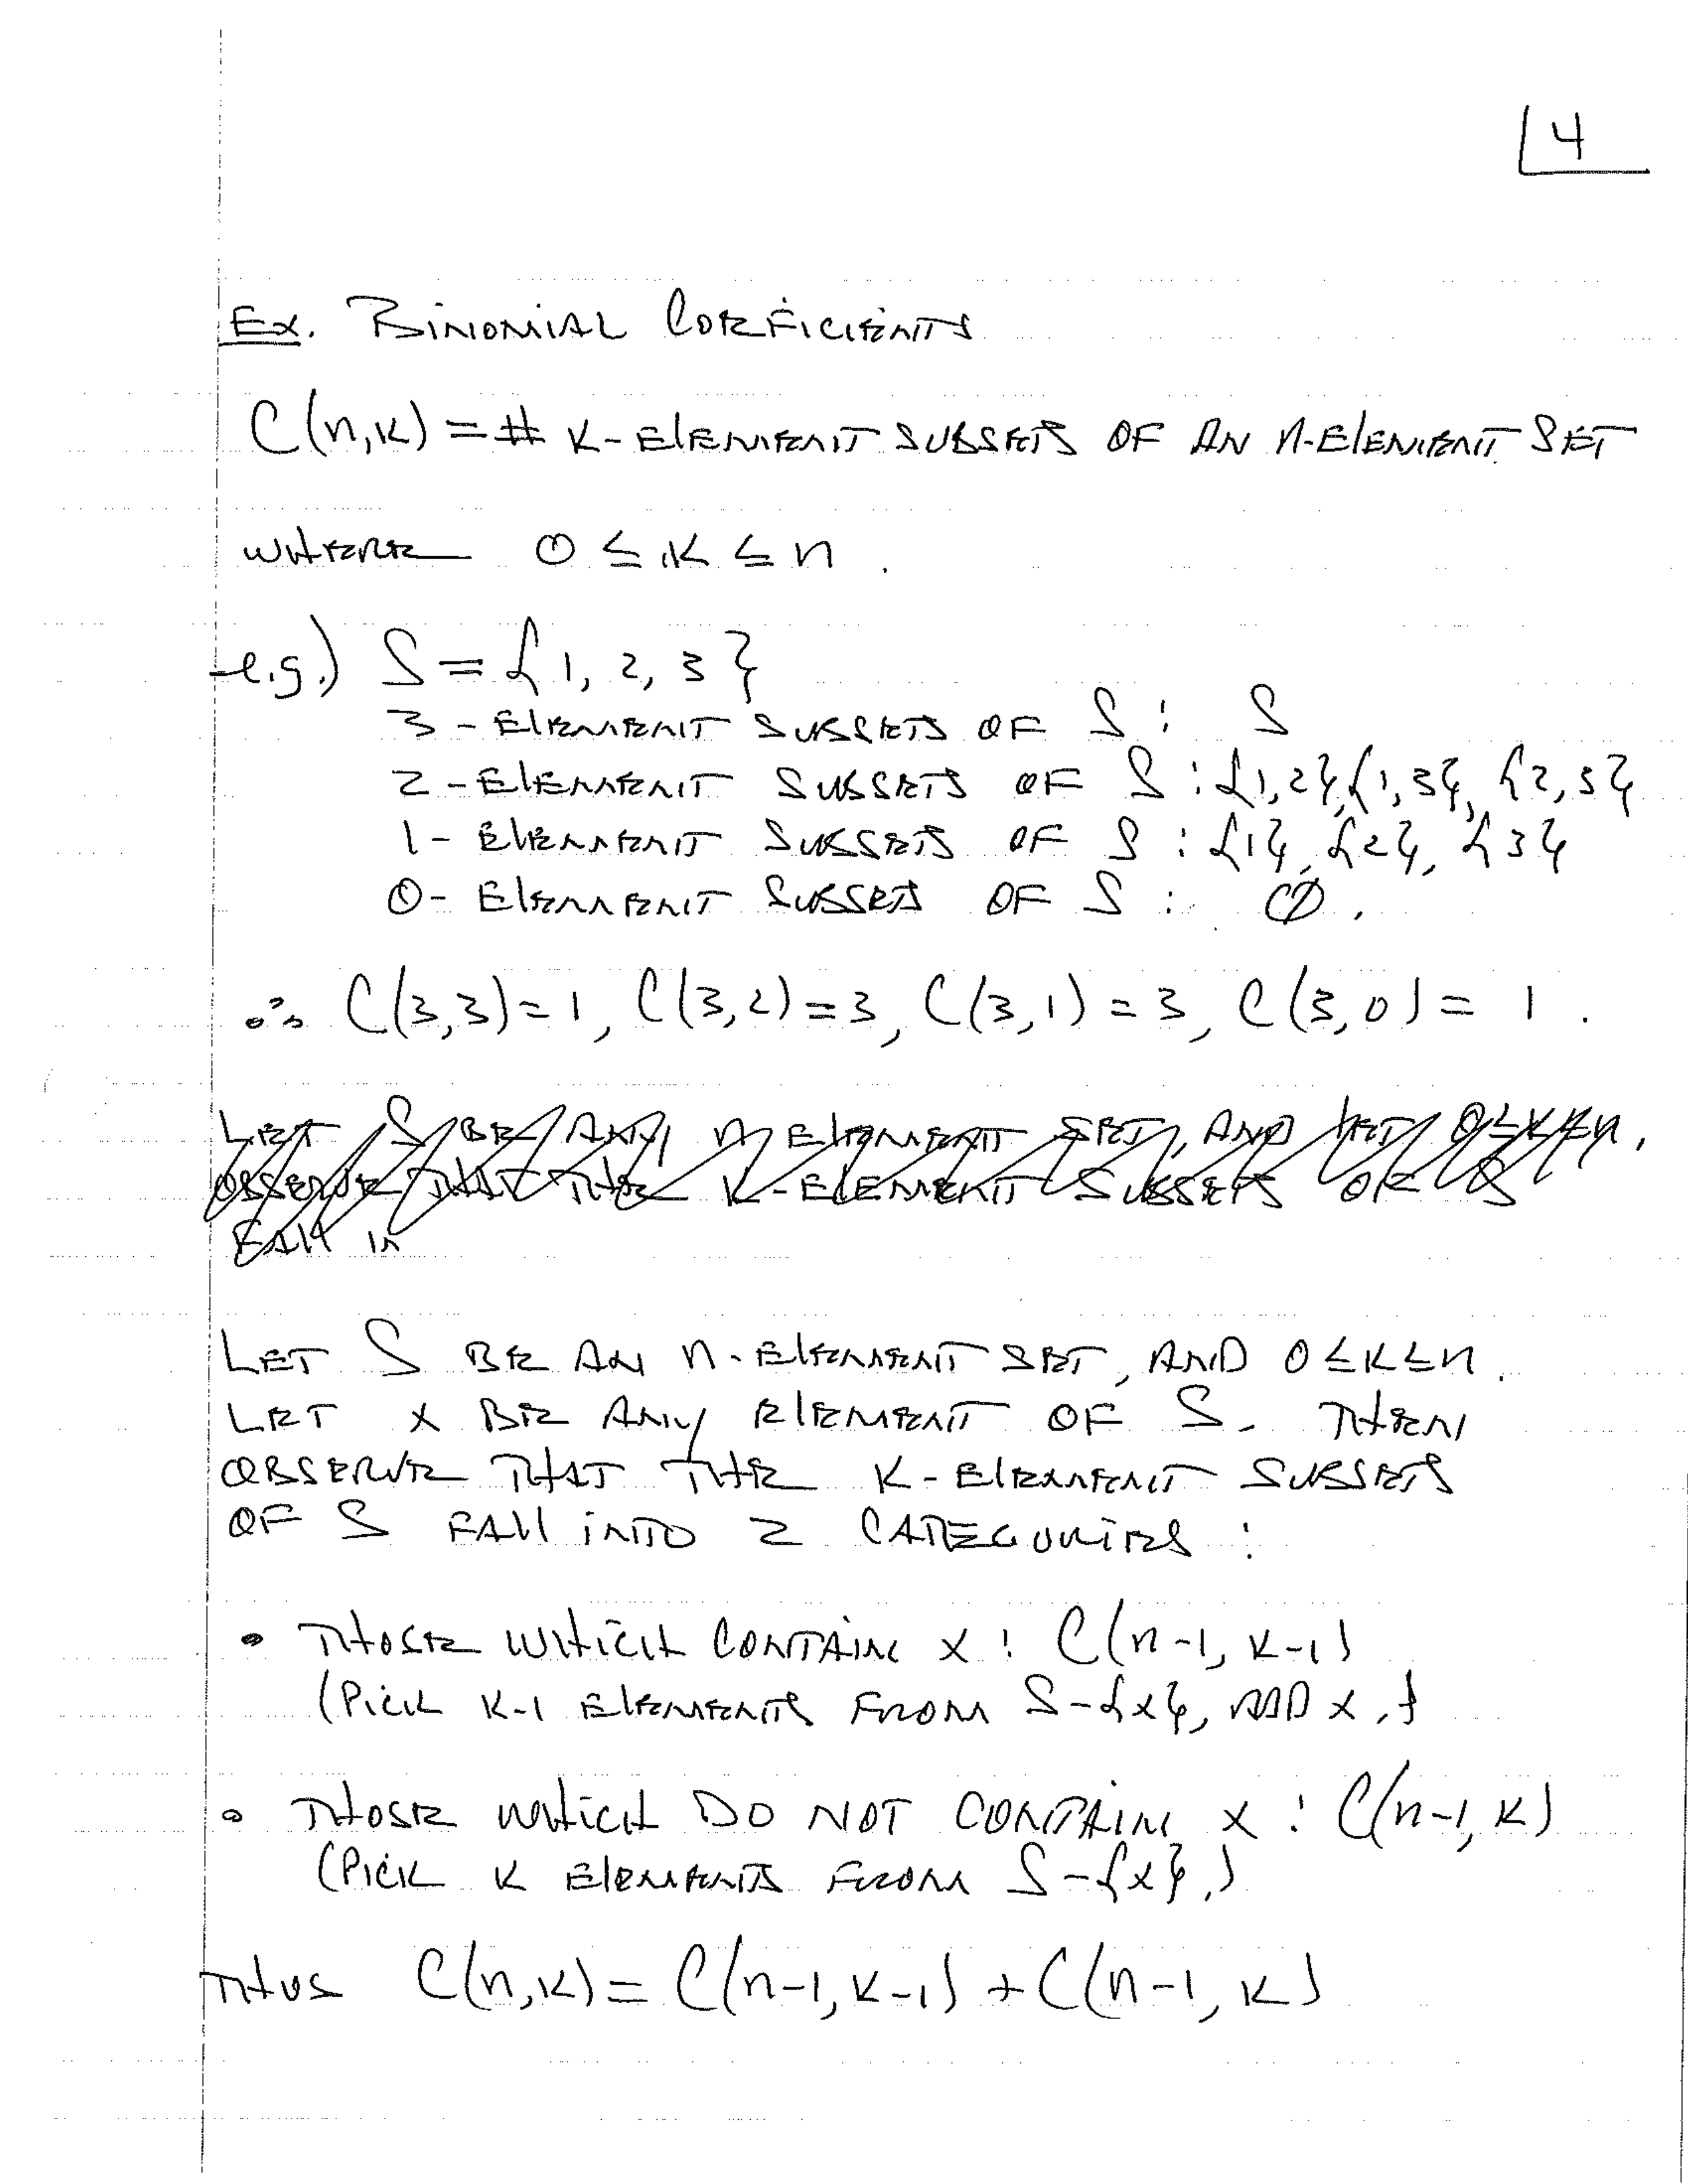 4
Ex. BINOMIAL COEFFICIENTS
C(n,k) = # K-ELEMENT SUBSETS OF AN n-ELEMENT SET
WHERE 0 ≤ K ≤ n.
e.g.) S = {1, 2, 3}
3-ELEMENT SUBSETS OF S: S
2-ELEMENT SUBSETS OF S: {1,2}, {1,3}, {2,3}
1-ELEMENT SUBSETS OF S: {1}, {2}, {3}
0-ELEMENT SUBSETS OF S: Ø.
∴ C(3,3)=1, C(3,2)=3, C(3,1)=3, C(3,0)=1.
LET S BE ANY n ELEMENT SET, AND LET 0≤K≤n.
OBSERVE THAT THE K-ELEMENT SUBSETS OF S
FALL IN
LET S BE AN n-ELEMENT SET, AND 0≤K≤n.
LET X BE ANY ELEMENT OF S. THEN
OBSERVE THAT THE K-ELEMENT SUBSETS
OF S FALL INTO 2 CATEGORIES:
• THOSE WHICH CONTAIN X: C(n-1, K-1)
(PICK K-1 ELEMENTS FROM S-{x}, ADD X.)
• THOSE WHICH DO NOT CONTAIN X: C(n-1, K)
(PICK K ELEMENTS FROM S-{x}.)
THUS C(n,K) = C(n-1, K-1) + C(n-1, K)